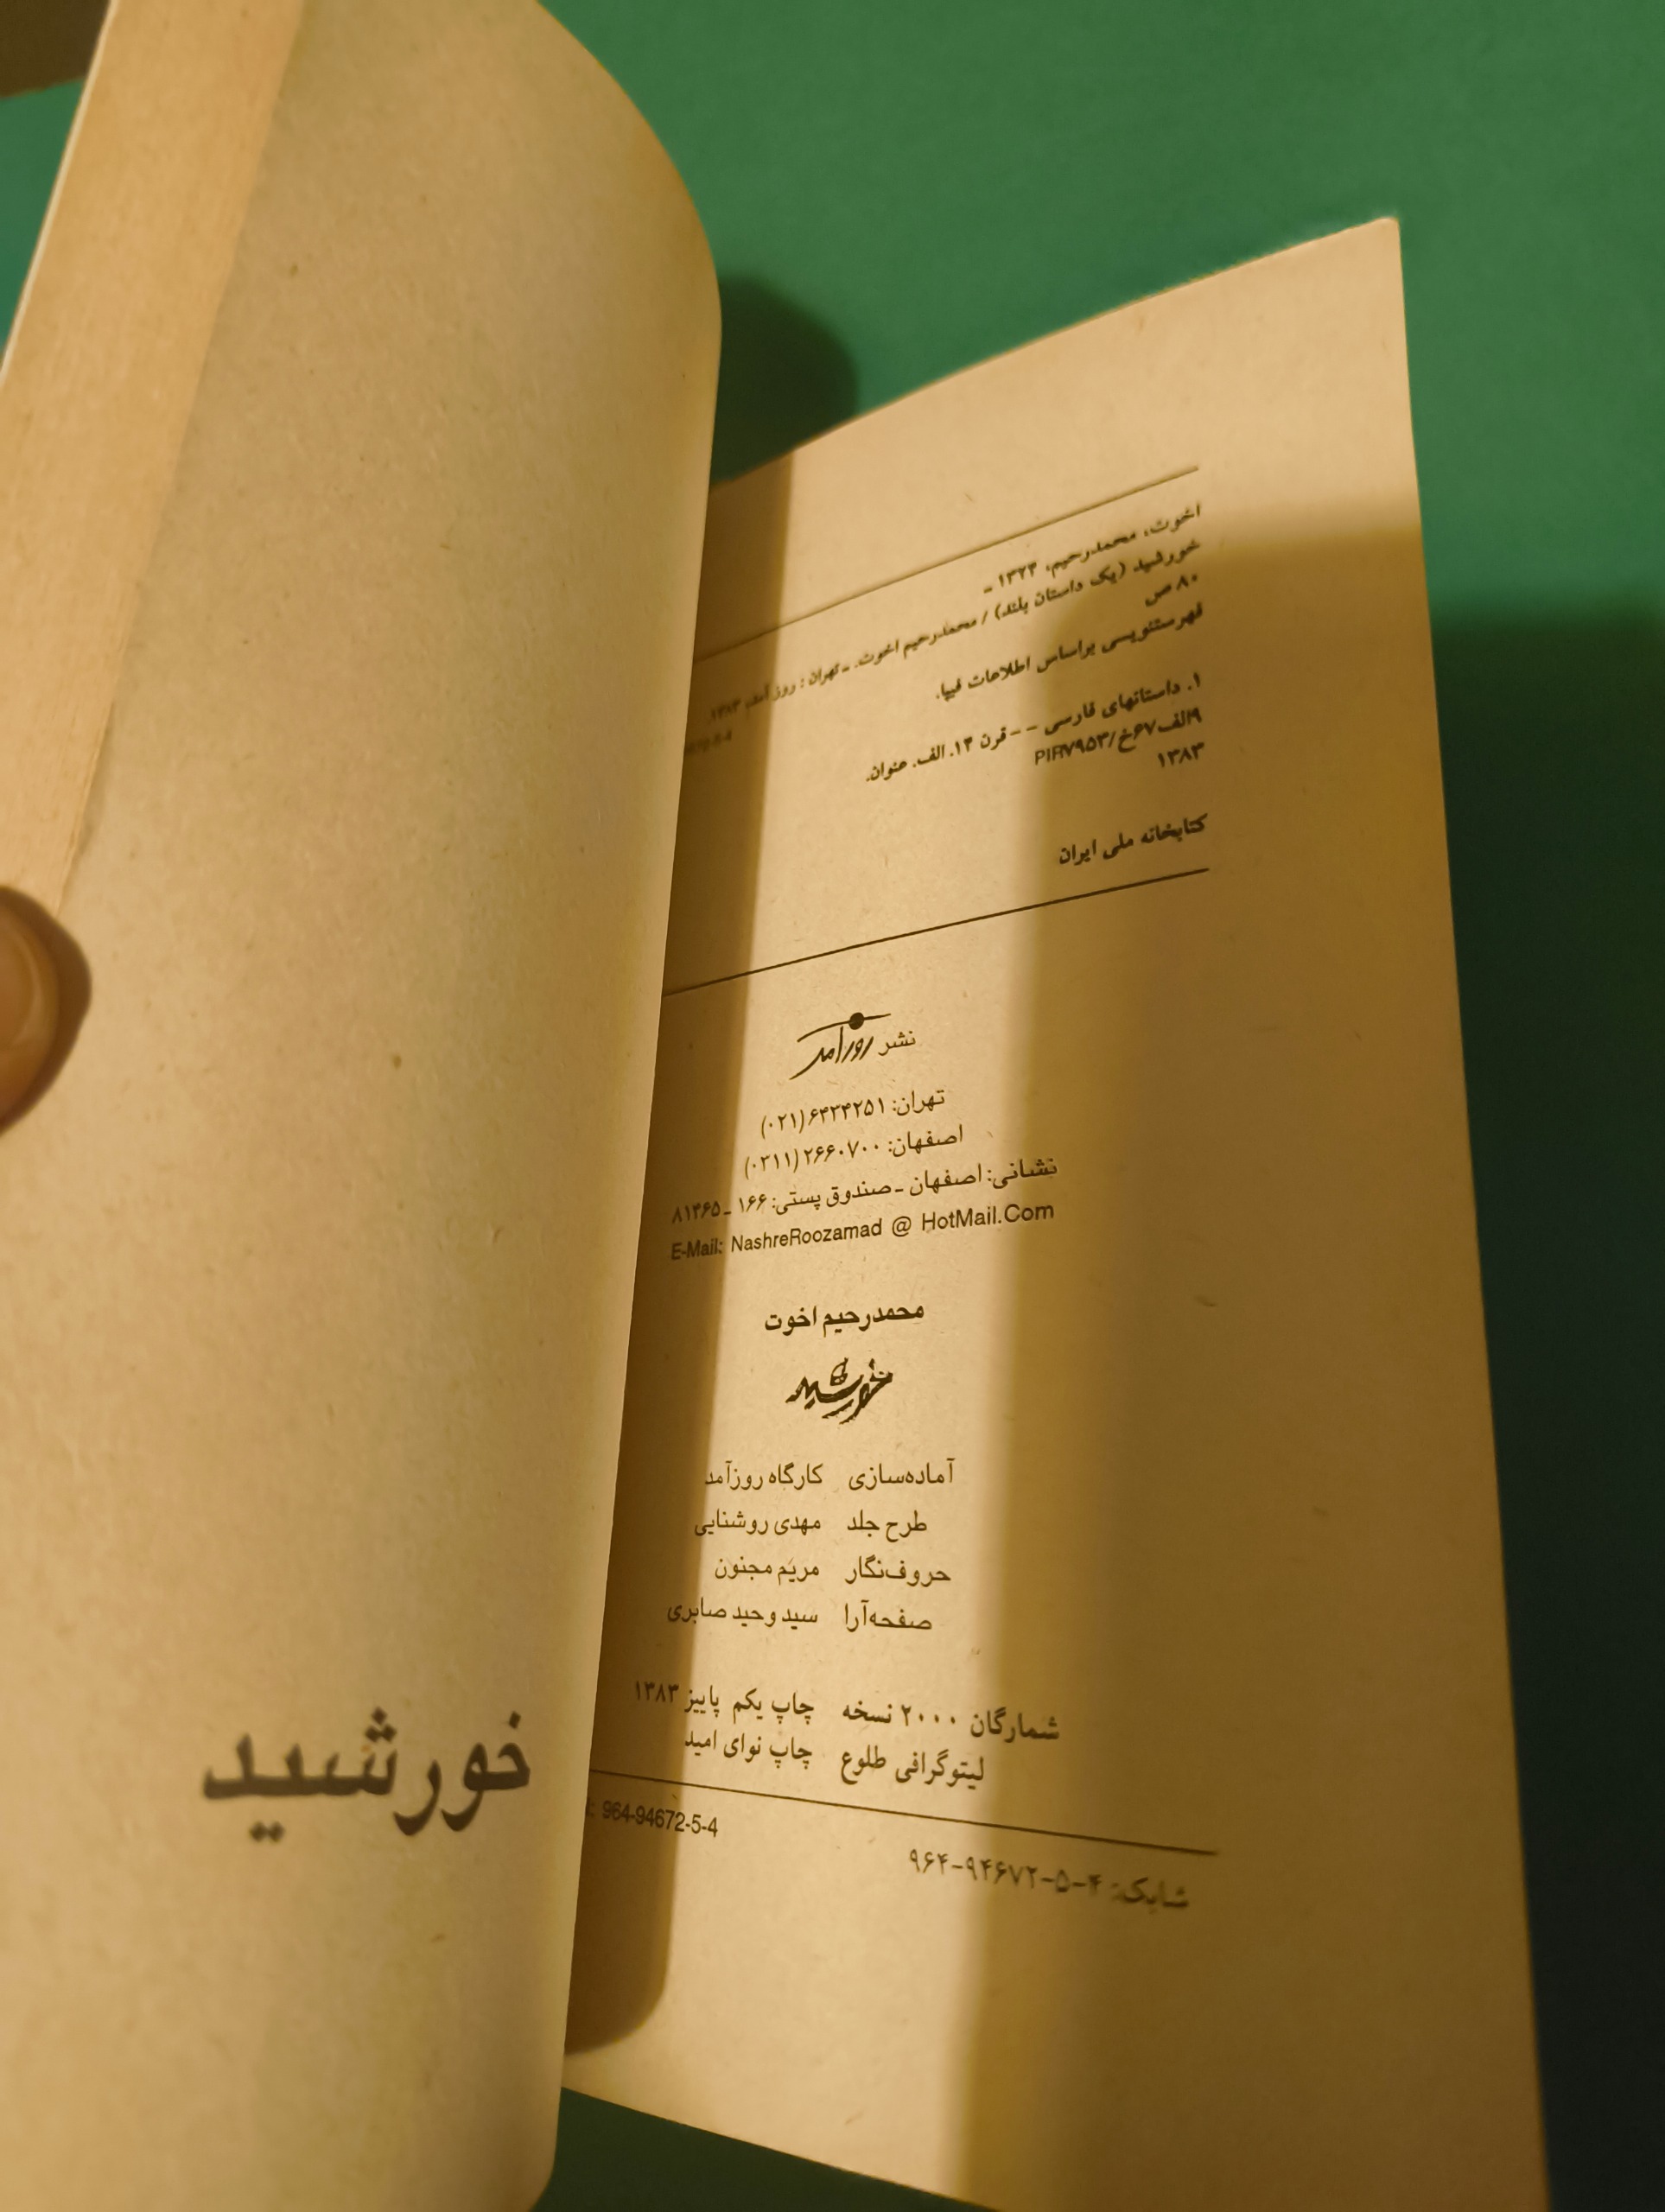 اخوت، محمدرحیم، ۱۳۲۴ ـ
خورشید (یک داستان بلند) / محمدرحیم اخوت. ـ تهران : روز آمد، ۱۳۸۳.
۸۰ ص
فهرستنویسی براساس اطلاعات فیپا.
۱. داستانهای فارسی -- قرن ۱۴. الف. عنوان.
۹الف۶۷خ/PIR۷۹۵۳
۱۳۸۳
کتابخانه ملی ایران
نشر روزآمد
تهران: ۶۴۳۴۲۵۱(۰۲۱)
اصفهان: ۲۶۶۰۷۰۰(۰۳۱۱)
نشانی: اصفهان ـ صندوق پستی: ۱۶۶ ـ ۸۱۴۶۵
E-Mail: NashreRoozamad @ HotMail.Com
محمدرحیم اخوت
خورشید
آماده‌سازی کارگاه روزآمد
طرح جلد مهدی روشنایی
حروف‌نگار مریم مجنون
صفحه‌آرا سید وحید صابری
شمارگان ۲۰۰۰ نسخه چاپ یکم پاییز ۱۳۸۳
لیتوگرافی طلوع چاپ نوای امید
شابک: ۴-۵-۹۴۶۷۲-۹۶۴ 964-94672-5-4
خورشید